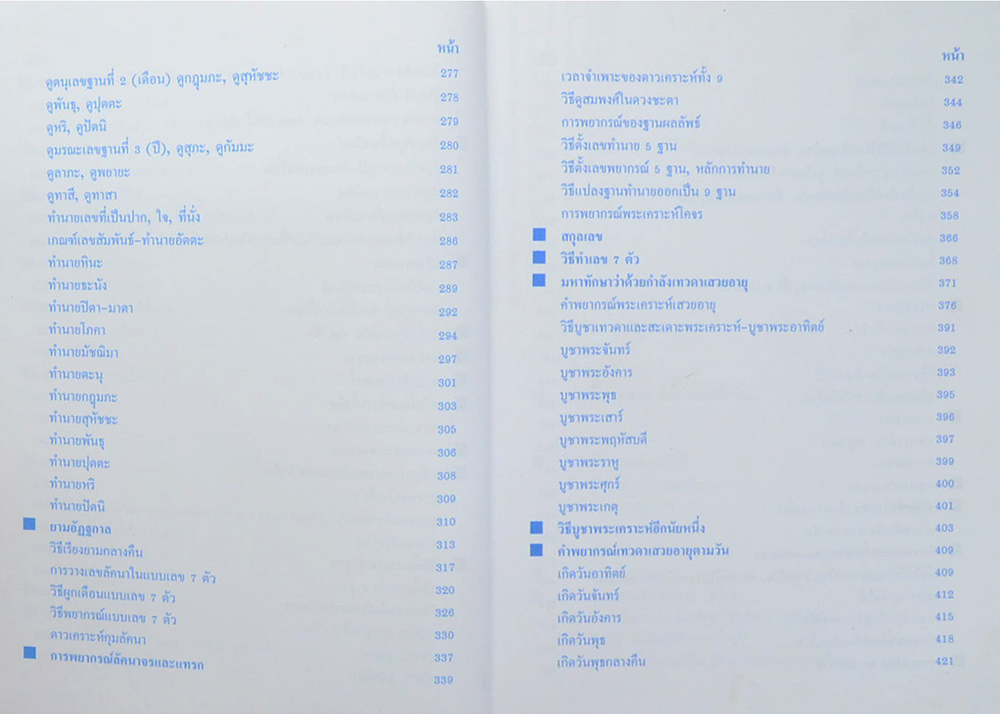 หน้า
ดูตนุเลขฐานที่ 2 (เดือน) ดูกฎุมภะ, ดูสุหัชชะ 277
ดูพันธุ, ดูปุตตะ 278
ดูหริ, ดูปัตนิ 279
ดูมรณะเลขฐานที่ 3 (ปี), ดูสุภะ, ดูกัมมะ 280
ดูลาภะ, ดูพยายะ 281
ดูทาสี, ดูทาสา 282
ทำนายเลขที่เป็นปาก, ใจ, ที่นั่ง 283
เกณฑ์เลขสัมพันธ์-ทำนายอัตตะ 286
ทำนายหินะ 287
ทำนายธะนัง 289
ทำนายปิตา-มาตา 292
ทำนายโภคา 294
ทำนายมัชฌิมา 297
ทำนายตะนุ 301
ทำนายกฎุมภะ 303
ทำนายสุหัชชะ 305
ทำนายพันธุ 306
ทำนายปุตตะ 308
ทำนายหริ 309
ทำนายปัตนิ 310
ยามอัฏฐกาล 313
วิธีเรียงยามกลางคืน 317
การวางเลขลัคนาในแบบเลข 7 ตัว 320
วิธีผูกเดือนแบบเลข 7 ตัว 326
วิธีพยากรณ์แบบเลข 7 ตัว 330
ดาวเคราะห์กุมลัคนา 337
การพยากรณ์ลัคนาจรและแทรก 339
หน้า
เวลาจำเพาะของดาวเคราะห์ทั้ง 9 342
วิธีดูสมพงศ์ในดวงชะตา 344
การพยากรณ์ของฐานผลลัพธ์ 346
วิธีตั้งเลขทำนาย 5 ฐาน 349
วิธีตั้งเลขพยากรณ์ 5 ฐาน, หลักการทำนาย 352
วิธีแปลงฐานทำนายออกเป็น 9 ฐาน 354
การพยากรณ์พระเคราะห์โคจร 358
สกุลเลข 366
วิธีทำเลข 7 ตัว 368
มหาทักษาว่าด้วยกำลังเทวดาเสวยอายุ 371
คำพยากรณ์พระเคราะห์เสวยอายุ 376
วิธีบูชาเทวดาและสะเดาะพระเคราะห์-บูชาพระอาทิตย์ 391
บูชาพระจันทร์ 392
บูชาพระอังคาร 393
บูชาพระพุธ 395
บูชาพระเสาร์ 396
บูชาพระพฤหัสบดี 397
บูชาพระราหู 399
บูชาพระศุกร์ 400
บูชาพระเกตุ 401
วิธีบูชาพระเคราะห์อีกนัยหนึ่ง 403
คำพยากรณ์เทวดาเสวยอายุตามวัน 409
เกิดวันอาทิตย์ 409
เกิดวันจันทร์ 412
เกิดวันอังคาร 415
เกิดวันพุธ 418
เกิดวันพุธกลางคืน 421